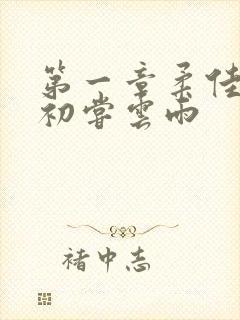 第一章柔佳
初嘗雲雨
褚中志